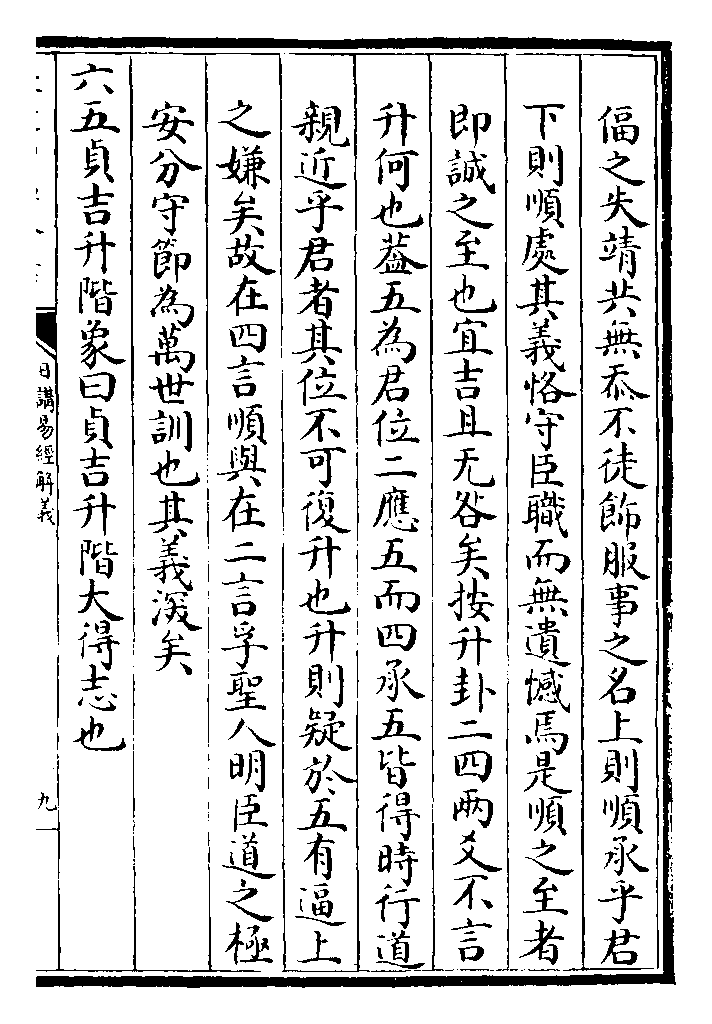 偪之失靖共無忝不徒飾服事之名上則順承乎君
下則順處其義恪守臣職而無遺憾焉是順之至者
即誠之至也宜吉且无咎矣按升卦二四兩爻不言
升何也葢五為君位二應五而四承五皆得時行道
親近乎君者其位不可復升也升則疑於五有逼上
之嫌矣故在四言順與在二言孚聖人明臣道之極
安分守節為萬世訓也其義深矣
六五貞吉升階象曰貞吉升階大得志也
日講易經解義
九